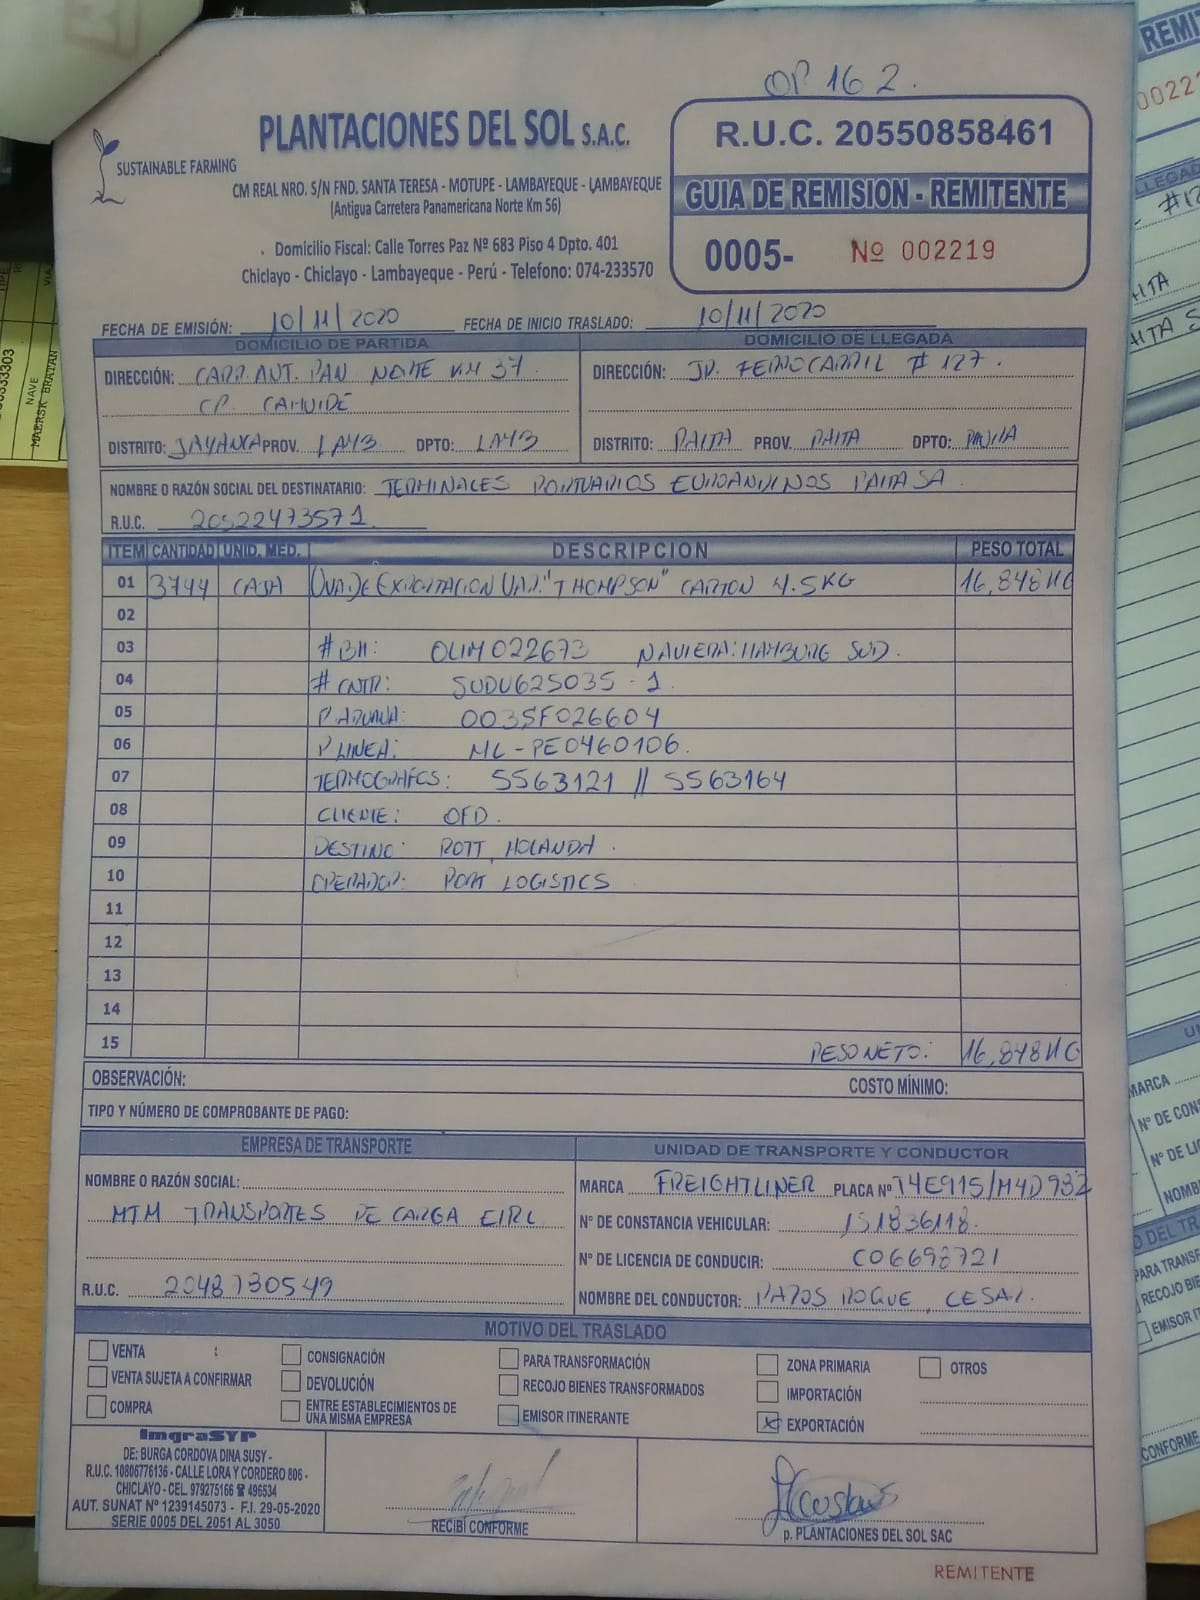 OP 162.
SUSTAINABLE FARMING
PLANTACIONES DEL SOL S.A.C.
CM REAL NRO. S/N FND. SANTA TERESA - MOTUPE - LAMBAYEQUE - LAMBAYEQUE
(Antigua Carretera Panamericana Norte Km 56)
. Domicilio Fiscal: Calle Torres Paz Nº 683 Piso 4 Dpto. 401
Chiclayo - Chiclayo - Lambayeque - Perú - Telefono: 074-233570
R.U.C. 20550858461
GUIA DE REMISION - REMITENTE
0005- Nº 002219
FECHA DE EMISIÓN: 10/11/2020 FECHA DE INICIO TRASLADO: 10/11/2020
DOMICILIO DE PARTIDA
DIRECCIÓN: CARR. ANT. PAN NORTE KM 37
CP. CAHUIDE
DISTRITO: JAYANCA PROV. LAMB DPTO: LAMB
DOMICILIO DE LLEGADA
DIRECCIÓN: JR. FERROCARRIL # 127.
DISTRITO: PAITA PROV. PAITA DPTO:
NOMBRE O RAZÓN SOCIAL DEL DESTINATARIO: TERMINALES PORTUARIOS EUROANDINOS PAITA SA
R.U.C. 20522473571
ITEM CANTIDAD UNID. MED. DESCRIPCION PESO TOTAL
01 3744 CAJA UVA DE EXPORTACION VAR. "THOMPSON" CARTON 4.5KG 16,848KG
02
03 #BK: OLIM022673 NAVIERA: HAMBURG SUD.
04 # CNTR: SUDU625035-1
05 P. ADUANA: 003SF026604
06 P LINEA: ML-PE0460106.
07 TERMOGRAFOS: 5563121 // 5563164
08 CLIENTE: OFD.
09 DESTINO: ROTT, HOLANDA.
10 OPERADOR: PORT LOGISTICS
11
12
13
14
15 PESO NETO: 16,848KG
OBSERVACIÓN: COSTO MÍNIMO:
TIPO Y NÚMERO DE COMPROBANTE DE PAGO:
EMPRESA DE TRANSPORTE
NOMBRE O RAZÓN SOCIAL:
MTM TRANSPORTES DE CARGA EIRL
R.U.C. 2048730549
UNIDAD DE TRANSPORTE Y CONDUCTOR
MARCA FREIGHTLINER PLACA Nº T4E915/M4D932
Nº DE CONSTANCIA VEHICULAR: 151836118.
Nº DE LICENCIA DE CONDUCIR: C06698721
NOMBRE DEL CONDUCTOR: ROQUE, CESAR.
MOTIVO DEL TRASLADO
VENTA CONSIGNACIÓN PARA TRANSFORMACIÓN ZONA PRIMARIA OTROS
VENTA SUJETA A CONFIRMAR DEVOLUCIÓN RECOJO BIENES TRANSFORMADOS IMPORTACIÓN
COMPRA ENTRE ESTABLECIMIENTOS DE UNA MISMA EMPRESA EMISOR ITINERANTE EXPORTACIÓN
ImgraSYP
DE: BURGA CORDOVA DINA SUSY -
R.U.C. 10806776136 - CALLE LORA Y CORDERO 806 -
CHICLAYO - CEL. 979275166 ☎ 496534
AUT. SUNAT Nº 1239145073 - F.I. 29-05-2020
SERIE 0005 DEL 2051 AL 3050
RECIBÍ CONFORME
p. PLANTACIONES DEL SOL SAC
REMITENTE
NAVE
MAERSK BRATAN
MARCA
Nº DE CONS
Nº DE LI
NOMB
PARA TRANSF
RECOJO BIE
EMISOR I
CONFORME